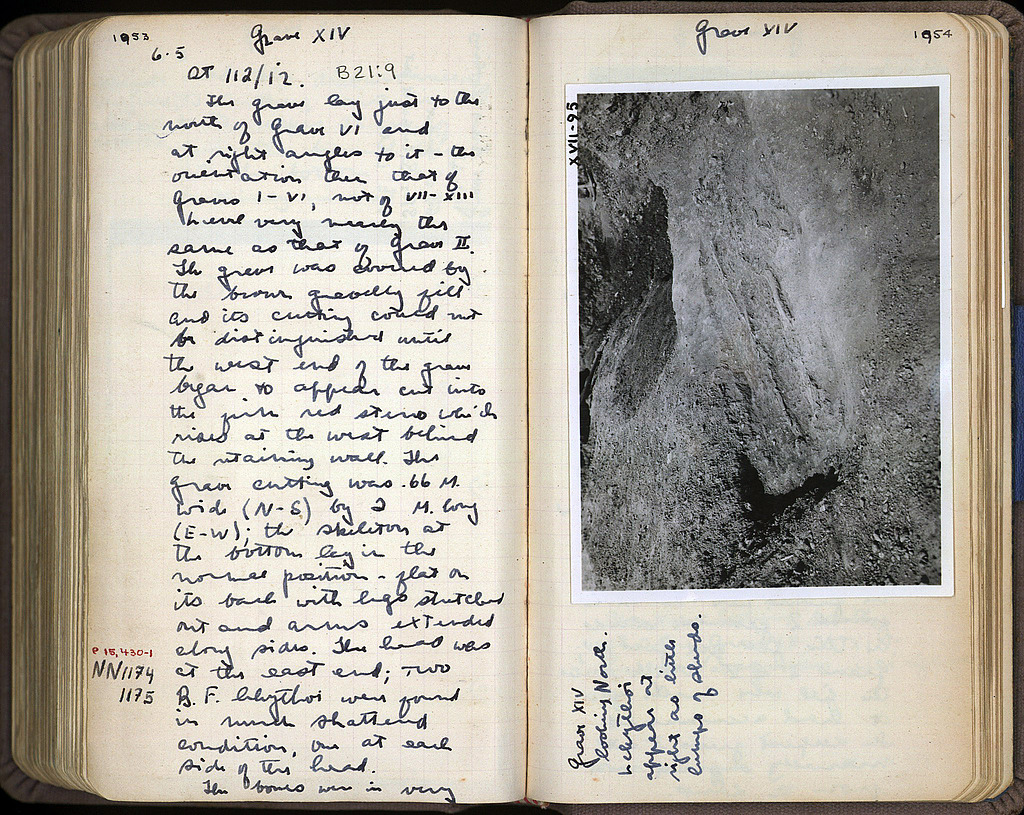 1953
Grave XIV
6.5
at 112/12. B21:9
The grave lay just to the
north of Grave VI and
at right angles to it - the
orientation then that of
graves I-VI, not of VII-XIII
Level very nearly the
same as that of Grave II.
The grave was covered by
the brown gravelly fill
and its cutting could not
be distinguished until
the west end of the grave
began to appear cut into
the pink red stereo which
rises at the west behind
the retaining wall. The
grave cutting was .66 M.
wide (N-S) by 2 M. long
(E-W); the skeleton at
the bottom lay in the
normal position - flat on
its back with legs stretched
out and arms extended
along sides. The head was
P 15,430-1
at the east end; two
NN1174
1175
B.F. lekythoi were found
in much shattered
condition, one at each
side of the head.
The bones were in very
Grave XIV
1954
XVII-95
Grave XIV
looking North.
Lekythoi
appear at
right as little
lumps of sherds.